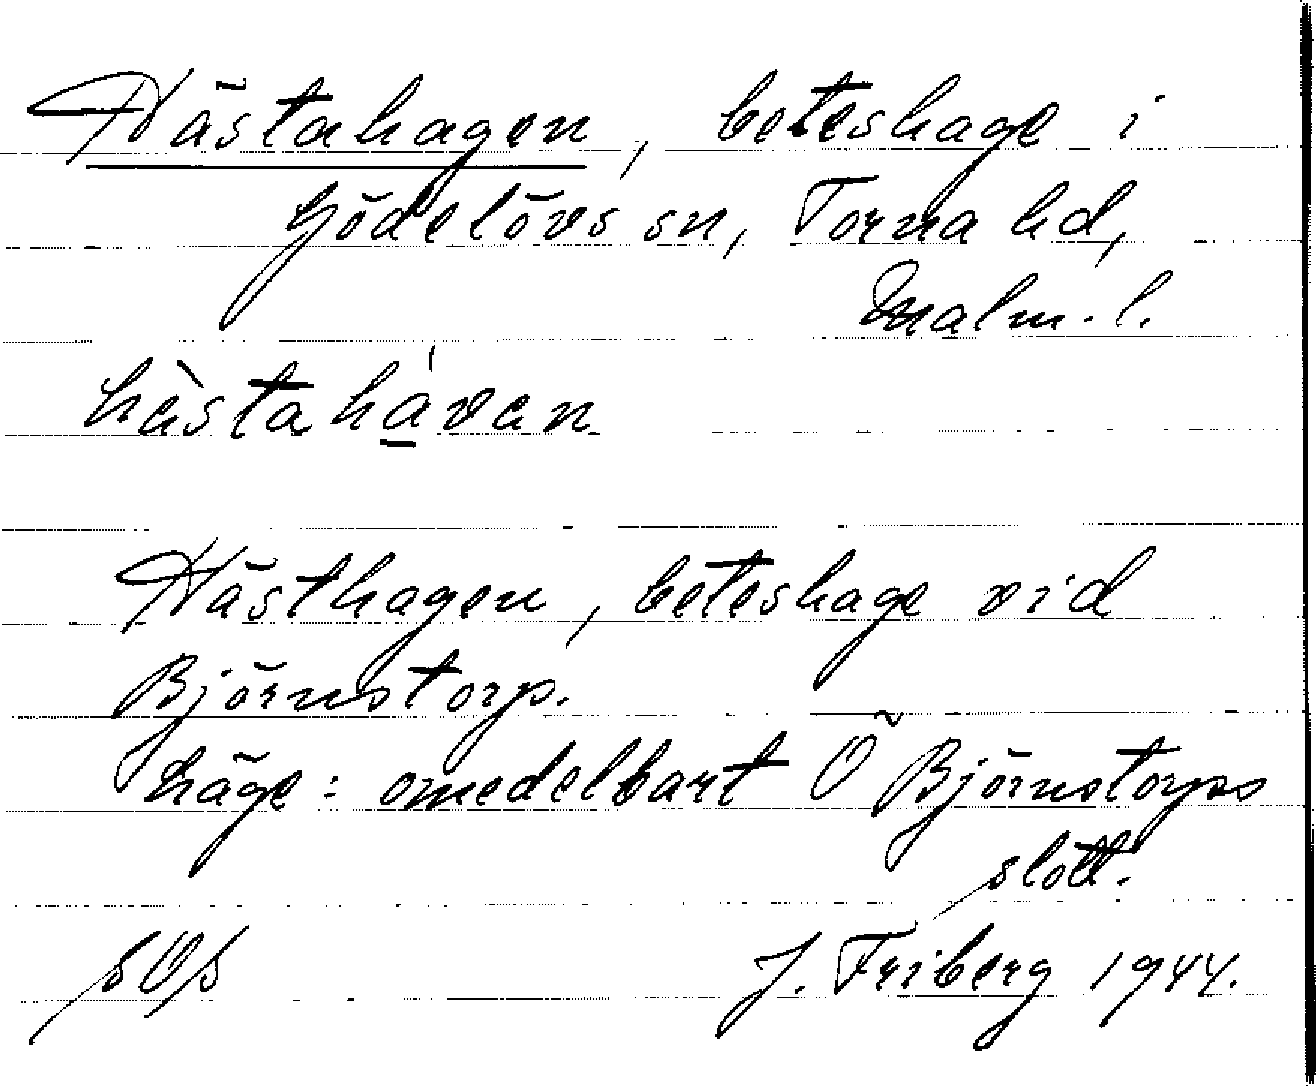 Hästahagen, beteshage i
Gödelövs sn, Torna hd,
Malm. l.
hästahávan
Hästhagen, beteshage vid
Björnstorp.
Läge: omedelbart Ö Björnstorps
slott.
J. Friberg 1944.